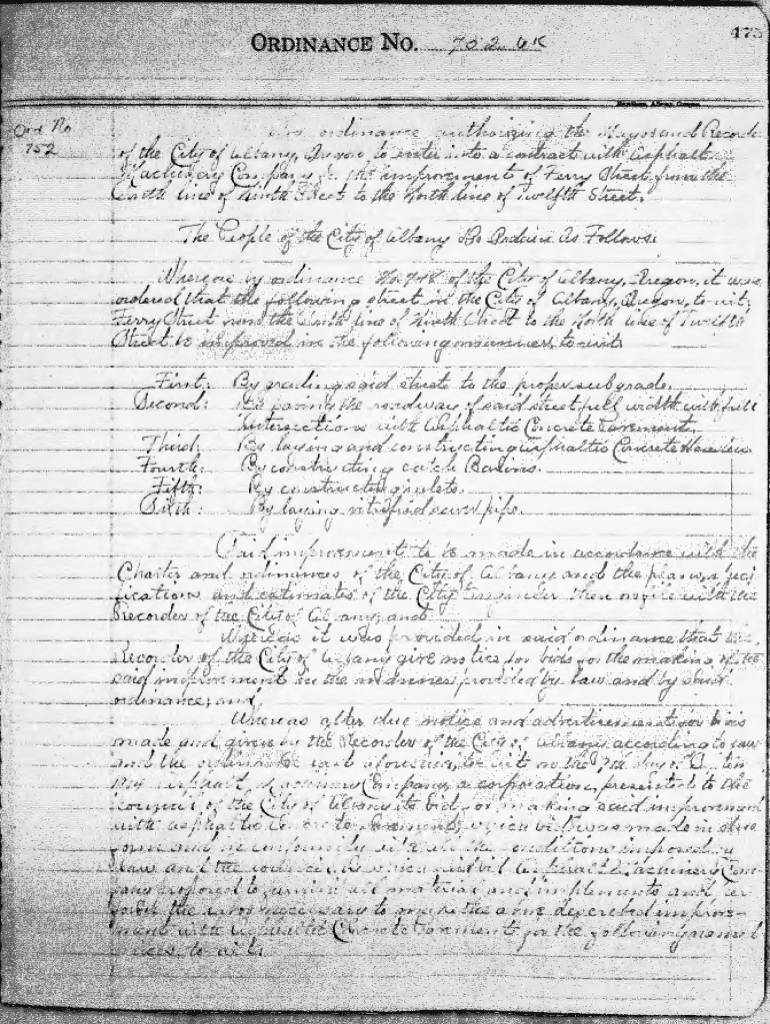 ORDINANCE NO. 752 OK
473
Ord No
752
An ordinance authorizing the Mayor and Recorder
of the City of Albany, Oregon, to enter into a contract with Asphalt
Machinery Company for the improvement of Ferry Street from the
South line of Ninth Street to the North line of Twelfth Street.
The People of the City of Albany Do Ordain As Follows:
Whereas by ordinance No. 748 of the City of Albany, Oregon, it was
ordered that the following street in the City of Albany, Oregon, to-wit:
Ferry Street from the South line of Ninth Street to the North line of Twelfth
Street be improved in the following manner, to-wit:
First: By grading said street to the proper subgrade.
Second: By paving the roadway of said street full width with full
intersections with Asphaltic Concrete Pavement.
Third: By laying and constructing Asphaltic Concrete
Fourth: By constructing catch Basins.
Fifth: By constructing inlets.
Sixth: By laying vitrified sewer pipe.
Said improvement to be made in accordance with the
Charter and ordinances of the City of Albany and the plans, speci
fications and estimates of the City Engineer then on file with the
Recorder of the City of Albany, and
Whereas it was provided in said ordinance that the
Recorder of the City of Albany give notice for bids for the making of the
said improvement in the manner provided by law and by said
ordinance; and,
Whereas after due notice and advertisement for bids
made and given by the Recorder of the City of Albany according to law
and the ordinance last aforesaid, to-wit: on the day of
Asphalt Machinery Company, a corporation, presented to the
council of the City of Albany its bid for making said improvement
with asphaltic Concrete Pavement, which bid was made in due
form and in conformity with all the conditions imposed by
law and the council, By which said bid Asphalt Machinery Com-
pany proposed to furnish all material and implements and per
form the labor necessary to make the above described improve-
ment with Asphaltic Concrete Pavement for the following named
prices, to-wit: